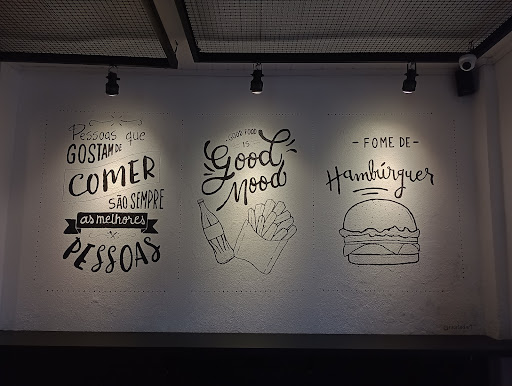 Pessoas que
GOSTAM DE
COMER
SÃO SEMPRE
as melhores
PESSOAS
GOOD FOOD
IS
Good
Mood
- FOME DE -
Hambúrguer